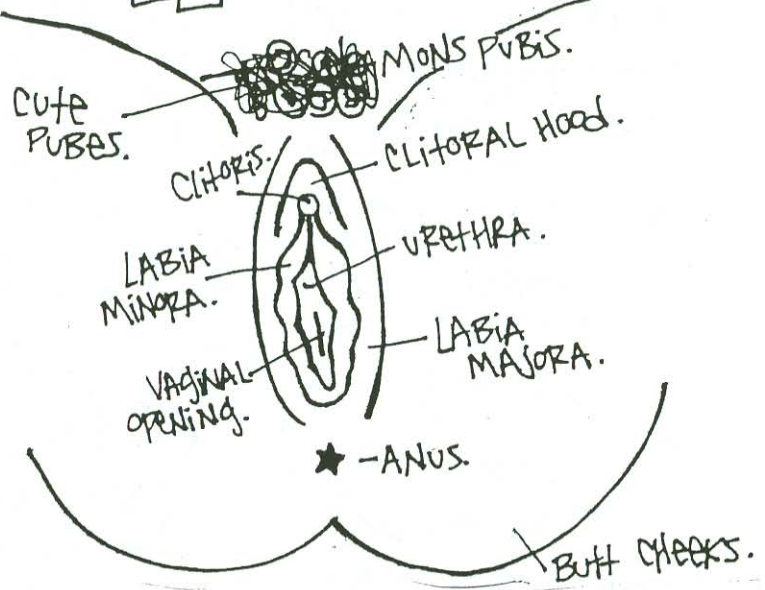 MONS PUBIS.
Cute
PUBES.
CLITORAL HOOD.
CLITORIS.
URETHRA.
LABIA
MINORA.
LABIA
MAJORA.
VAGINAL
OPENING.
-ANUS.
BUTT CHEEKS.